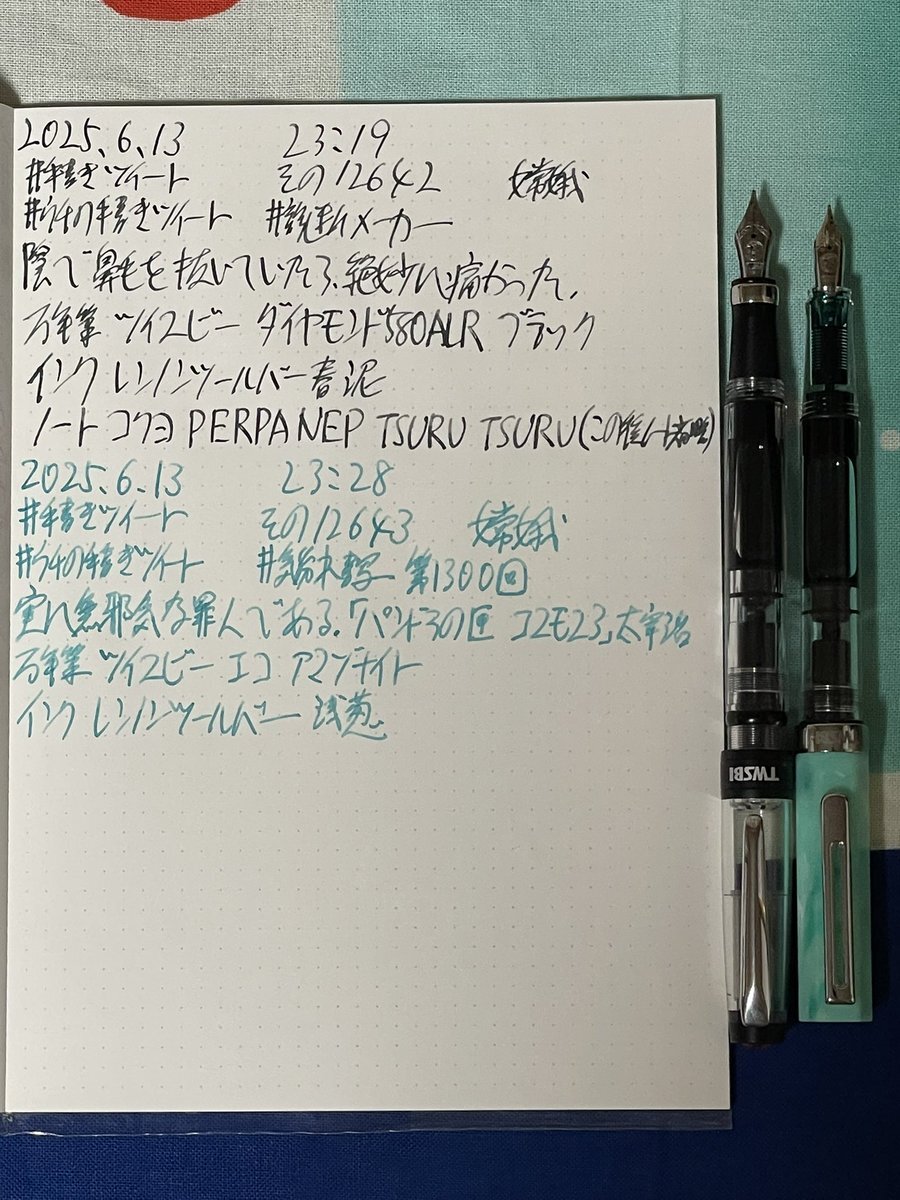 2025.6.13 23:19
#手書きツイート その12642 嫦娥
#ウチの手書きツイート #読転メーカー
陰で鼻毛を抜いていたろ、絶妙に痛かった。
万年筆 ツイスビー ダイヤモンド580ALR ブラック
インク レンノンツールバー 春泥
ノート コクヨ PERPANEP TSURU TSURU(この後ノート省略)
2025.6.13 23:28
#手書きツイート その12643 嫦娥
#ウチの手書きツイート 第1300回
実に無邪気な罪人である。「パンドラの匣 コスモス3」太宰治
万年筆 ツイスビー エコ アマゾナイト
インク レンノンツールバー 浅葱
TWSBI